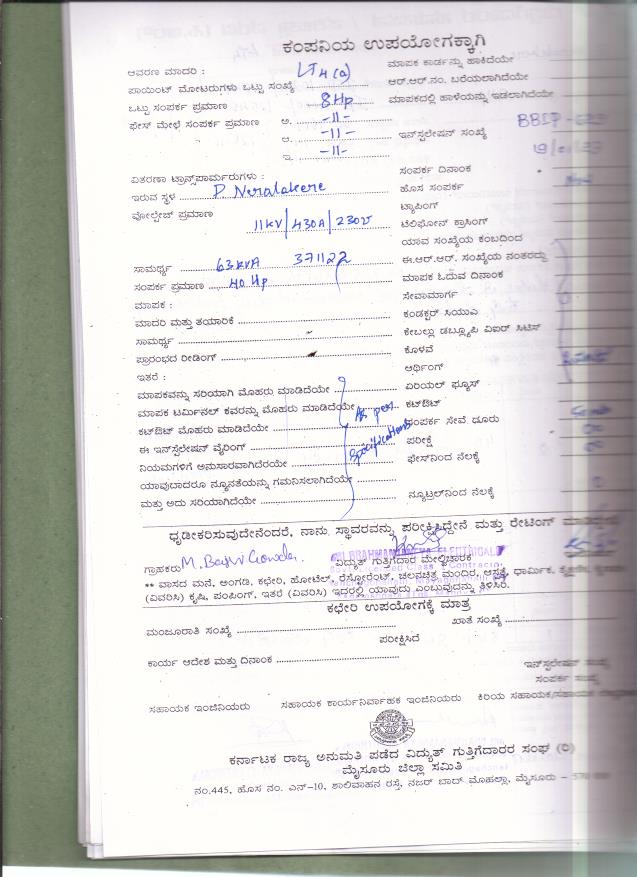 ಕಂಪನಿಯ ಉಪಯೋಗಕ್ಕಾಗಿ
ಆವರಣ ಮಾದರಿ : LT4(a)
ಮಾಪಕ ಕಾರ್ಡನ್ನು ಹಾಕಿದೆಯೇ
ಪಾಯಿಂಟ್ ಮೋಟರುಗಳು ಒಟ್ಟು ಸಂಖ್ಯೆ
ಆರ್.ಆರ್.ನಂ. ಬರೆಯಲಾಗಿದೆಯೇ
ಒಟ್ಟು ಸಂಪರ್ಕ ಪ್ರಮಾಣ 8Hp
ಮಾಪಕದಲ್ಲಿ ಹಾಳೆಯನ್ನು ಇಡಲಾಗಿದೆಯೇ
ಫೇಸ್ ಮೇಳೆ ಸಂಪರ್ಕ ಪ್ರಮಾಣ ಅ. -11-
ಆ. -11- ಇನ್‌ಸ್ಟಲೇಷನ್ ಸಂಖ್ಯೆ
ಇ. -11-
ಸಂಪರ್ಕ ದಿನಾಂಕ
ವಿತರಣಾ ಟ್ರಾನ್ಸ್‌ಪಾರ್ಮರುಗಳು :
ಇರುವ ಸ್ಥಳ D Neralakere
ಹೊಸ ಸಂಪರ್ಕ
ವೋಲ್ಟೇಜ್ ಪ್ರಮಾಣ
ಟ್ಯಾಪಿಂಗ್
11KV/430A/230V
ಟೆಲಿಫೋನ್ ಕ್ರಾಸಿಂಗ್
ಯಾವ ಸಂಖ್ಯೆಯ ಕಂಬದಿಂದ
ಸಾಮರ್ಥ್ಯ 63KVA 371122
ಈ.ಆರ್.ಆರ್. ಸಂಖ್ಯೆಯ ನಂತರದ್ದು
ಸಂಪರ್ಕ ಪ್ರಮಾಣ 40 Hp
ಮಾಪಕ ಓದುವ ದಿನಾಂಕ
ಮಾಪಕ :
ಸೇವಾಮಾರ್ಗ
ಮಾದರಿ ಮತ್ತು ತಯಾರಿಕೆ
ಕಂಡಕ್ಟರ್ ಸಿಯುಎ
ಸಾಮರ್ಥ್ಯ
ಕೇಬಲ್ಲು ಡಬ್ಲ್ಯೂಪಿ ವಿಐರ್ ಸಿಟಿಸ್
ಪ್ರಾರಂಭದ ರೀಡಿಂಗ್
ಕೊಳವೆ
ಇತರೆ :
ಆರ್ಥಿಂಗ್
ಮಾಪಕವನ್ನು ಸರಿಯಾಗಿ ಮೊಹರು ಮಾಡಿದೆಯೇ
ಏರಿಯಲ್ ಫ್ಯೂಸ್
ಮಾಪಕ ಟರ್ಮಿನಲ್ ಕವರನ್ನು ಮೊಹರು ಮಾಡಿದೆಯೇ As per
ಕಟ್‌ಔಟ್
ಕಟ್‌ಔಟ್ ಮೊಹರು ಮಾಡಿದೆಯೇ Specifications
ಸಂಪರ್ಕ ಸೇವೆ ದೂರು
ಈ ಇನ್‌ಸ್ಟಲೇಷನ್ ವೈರಿಂಗ್
ಪರೀಕ್ಷೆ
ನಿಯಮಗಳಿಗೆ ಅನುಸಾರವಾಗಿದೆಯೇ
ಫೇಸ್‌ನಿಂದ ನೆಲಕ್ಕೆ
ಯಾವುದಾದರೂ ನ್ಯೂನತೆಯನ್ನು ಗಮನಿಸಲಾಗಿದೆಯೇ
ಮತ್ತು ಅದು ಸರಿಯಾಗಿದೆಯೇ
ನ್ಯೂಟ್ರಲ್‌ನಿಂದ ನೆಲಕ್ಕೆ
ಧೃಡೀಕರಿಸುವುದೇನೆಂದರೆ, ನಾನು ಸ್ಥಾವರವನ್ನು ಪರೀಕ್ಷಿಸಿದ್ದೇನೆ ಮತ್ತು ರೇಟಿಂಗ್
ಗ್ರಾಹಕರು
ವಿದ್ಯುತ್ ಗುತ್ತಿಗೆದಾರ ಮೇಲ್ವಿಚಾರಕ
** ವಾಸದ ಮನೆ, ಅಂಗಡಿ, ಕಛೇರಿ, ಹೋಟೆಲ್, ರೆಸ್ಟೋರೆಂಟ್, ಚಲನಚಿತ್ರ ಮಂದಿರ, ಆಸ್ಪತ್ರೆ, ಧಾರ್ಮಿಕ,
(ವಿವರಿಸಿ) ಕೃಷಿ, ಪಂಪಿಂಗ್, ಇತರೆ (ವಿವರಿಸಿ) ಇದರಲ್ಲಿ ಯಾವುದು ಎಂಬುವುದನ್ನು ತಿಳಿಸಿರಿ.
ಕಛೇರಿ ಉಪಯೋಗಕ್ಕೆ ಮಾತ್ರ
ಮಂಜೂರಾತಿ ಸಂಖ್ಯೆ
ಖಾತೆ ಸಂಖ್ಯೆ
ಪರೀಕ್ಷಿಸಿದೆ
ಕಾರ್ಯ ಆದೇಶ ಮತ್ತು ದಿನಾಂಕ
ಇನ್‌ಸ್ಟಲೇಷನ್ ಸಂಖ್ಯೆ
ಸಂಪರ್ಕ ಸಂಖ್ಯೆ
ಸಹಾಯಕ ಇಂಜಿನಿಯರು ಸಹಾಯಕ ಕಾರ್ಯನಿರ್ವಾಹಕ ಇಂಜಿನಿಯರು ಕಿರಿಯ ಸಹಾಯಕ/ಸಹಾಯಕ
ಕರ್ನಾಟಕ ರಾಜ್ಯ ಅನುಮತಿ ಪಡೆದ ವಿದ್ಯುತ್ ಗುತ್ತಿಗೆದಾರರ ಸಂಘ (ರಿ)
ಮೈಸೂರು ಜಿಲ್ಲಾ ಸಮಿತಿ
ನಂ.445, ಹೊಸ ನಂ. ಎನ್-10, ಶಾಲಿವಾಹನ ರಸ್ತೆ, ನಜರ್ ಬಾದ್ ಮೊಹಲ್ಲಾ, ಮೈಸೂರು - 570